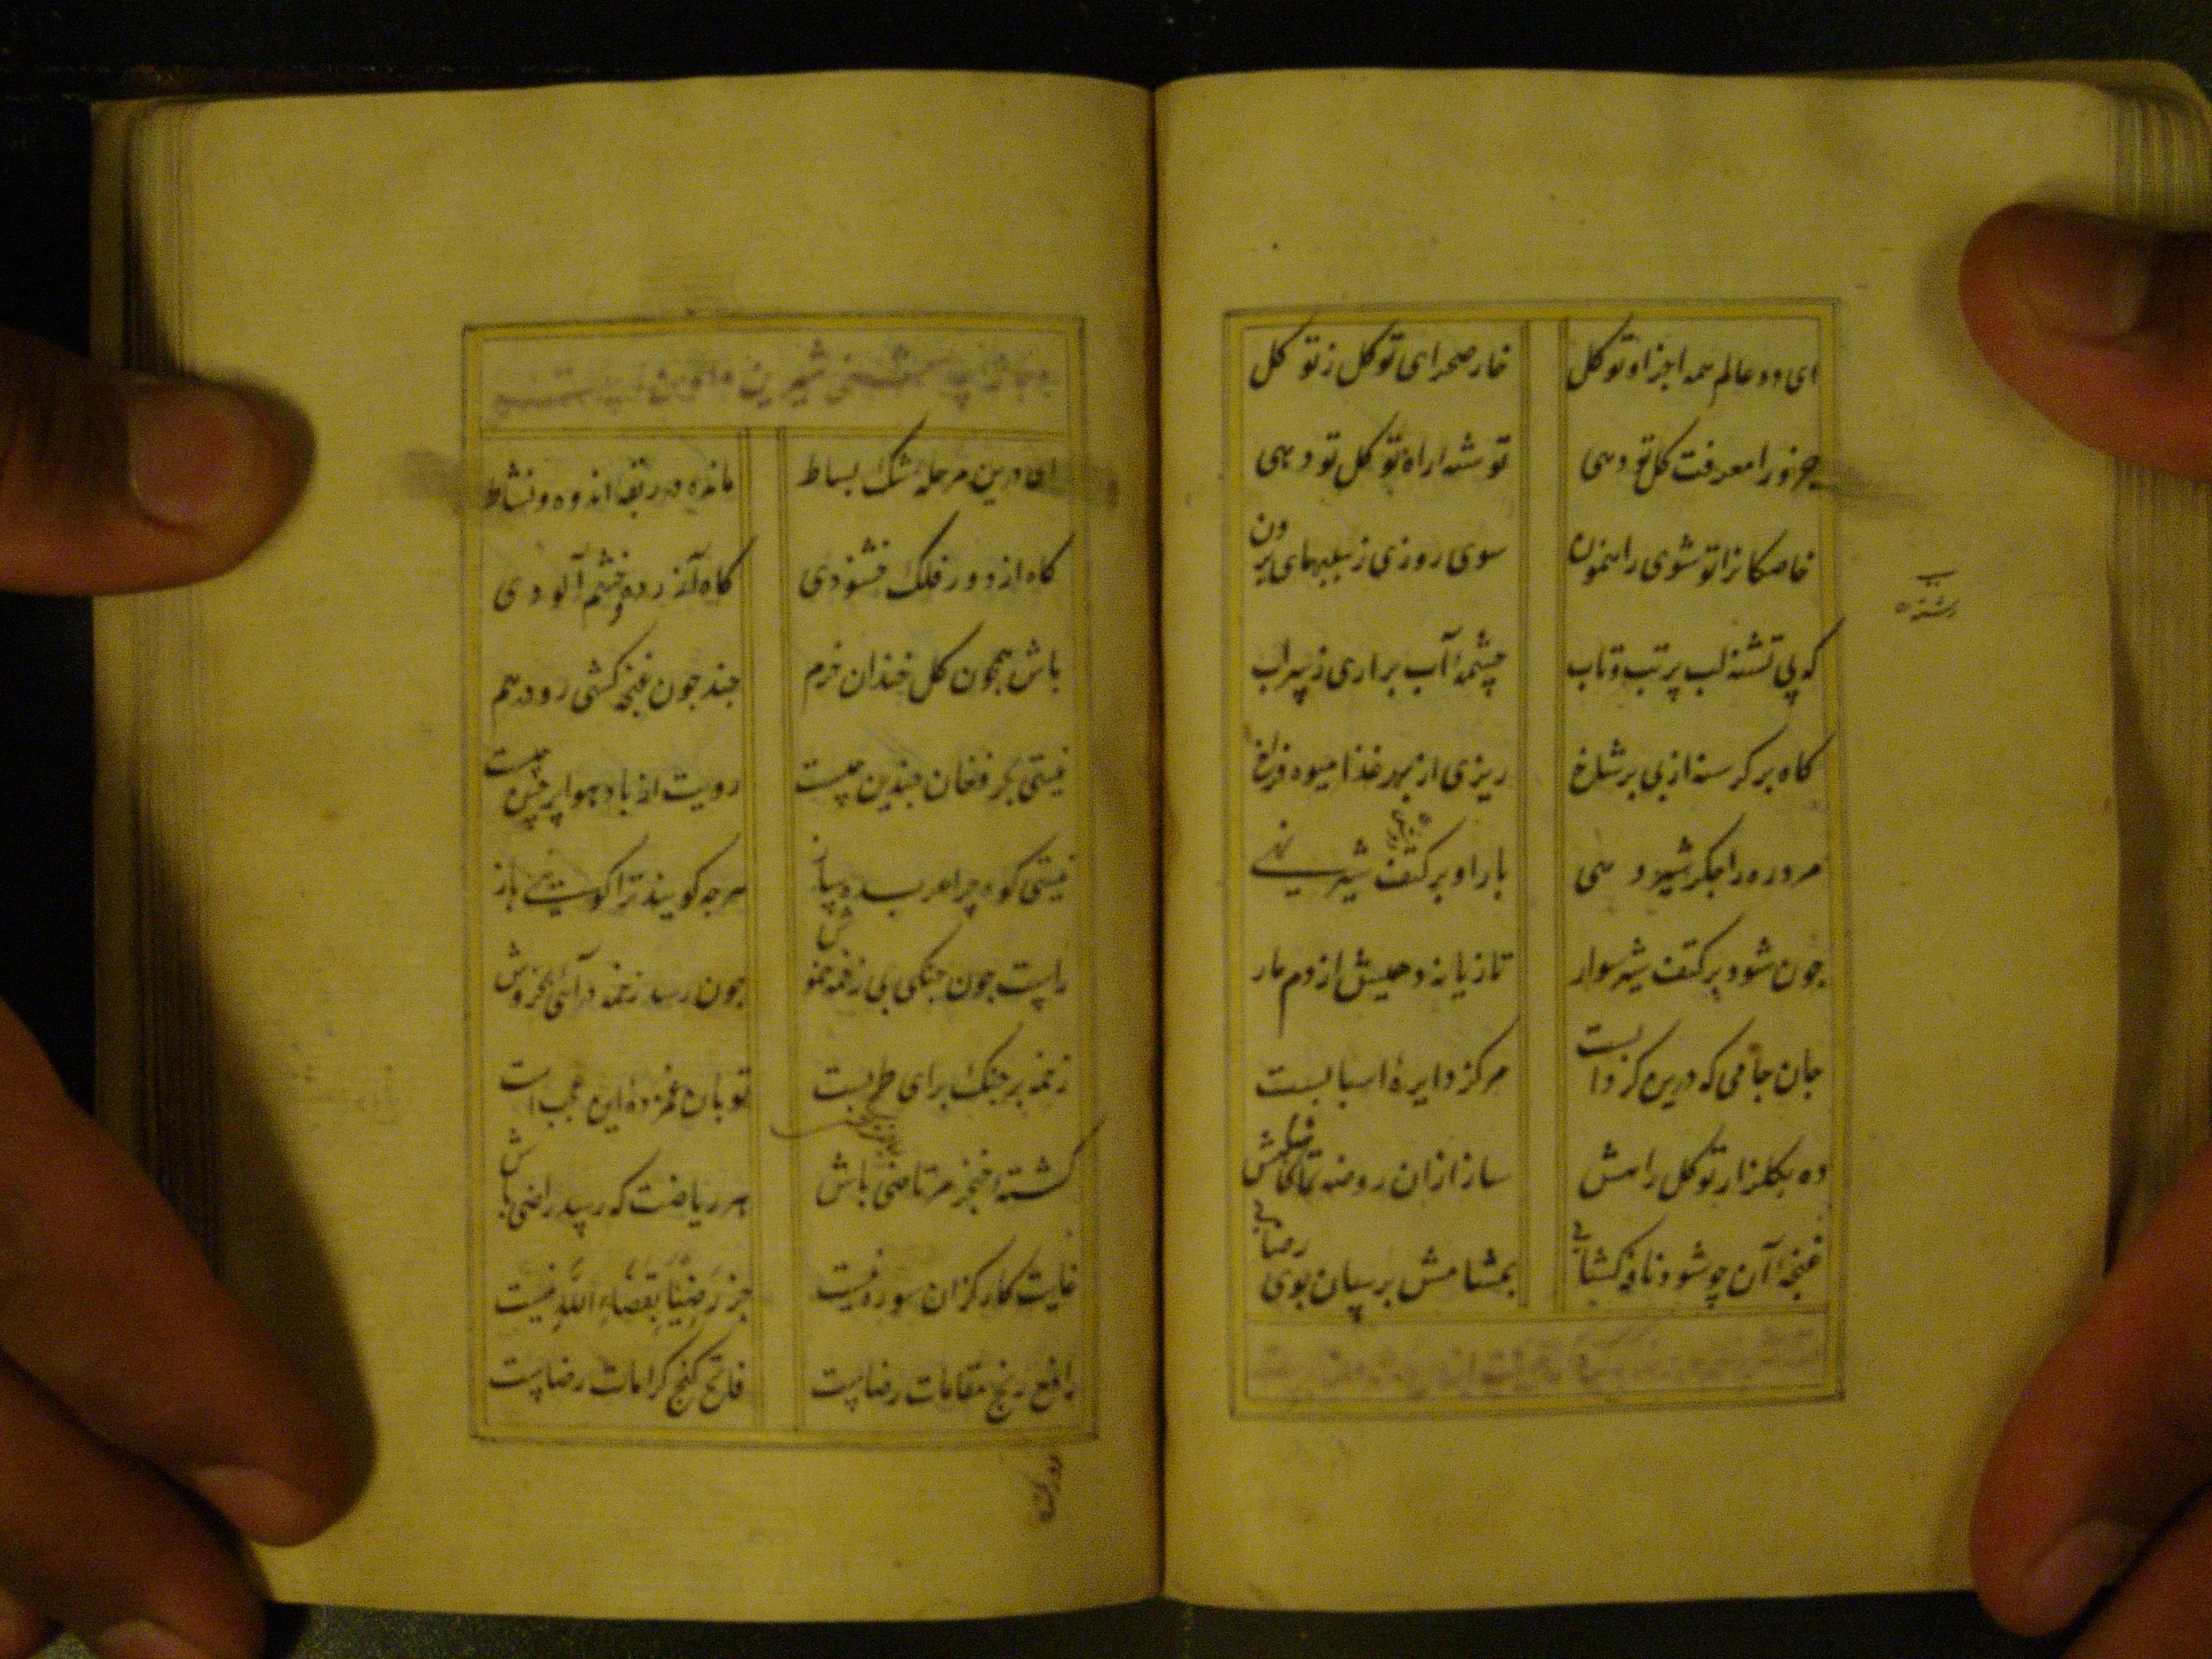 ای دو عالم همه اجزا و تو کل خار صحرای توکل ز تو گل
جزو را معرفت کل تو دهی توشهٔ راه توکل تو دهی
خاصکانرا تو شوی راهنمون سوی روزی ز سببهای برون
که پی تشنه لب پر تب و تاب چشمهٔ آب براری ز سراب
کاه بر کرسنه از بی بر شاخ ریزی از بهر غذا میوه فراخ
مرد ره را جکر شیر دهی بار او بر کتف شیر نهی
جون شود بر کتف شیر سوار تازیانه دهیش از دم مار
جان جامی که درین کردابست مرکز دایرهٔ اسبابست
ده بکلزار توکل راهش ساز ازان روضه تماشاکاهش
غنجهٔ آن جو شود نافه کشای بمشامش برسان بوی رضای
رشته
ای درین مرحلهٔ تنک بساط مانده در ربقهٔ اندوه و نشاط
کاه از دور فلک خشنودی کاه آزرده و خشم آلودی
باش همجون کل خندان خرم جند جون غنجه کشی رو درهم
نیستی بحر فغان جندین جیست رویت از باد هوا پرجین جیست
نیستی کوه جرا عربده ساز هرجه کویند ترا کویی باز
راست جون جنکی بی زخمه خموش جون رسد زخمه درآئی بخروش
زخمه بر جنک برای طربست تو بان غمزدهٔ این عجب است
کشتهٔ خنجر مرتاضی باش هر ریاضت که رسد راضی باش
غایت کار کزان سوره نیست جز رَضِینَا بِقَضَاءِ اللّٰه نیست
رافع رنج مقامات رضاست فاتح کنج کرامات رضاست